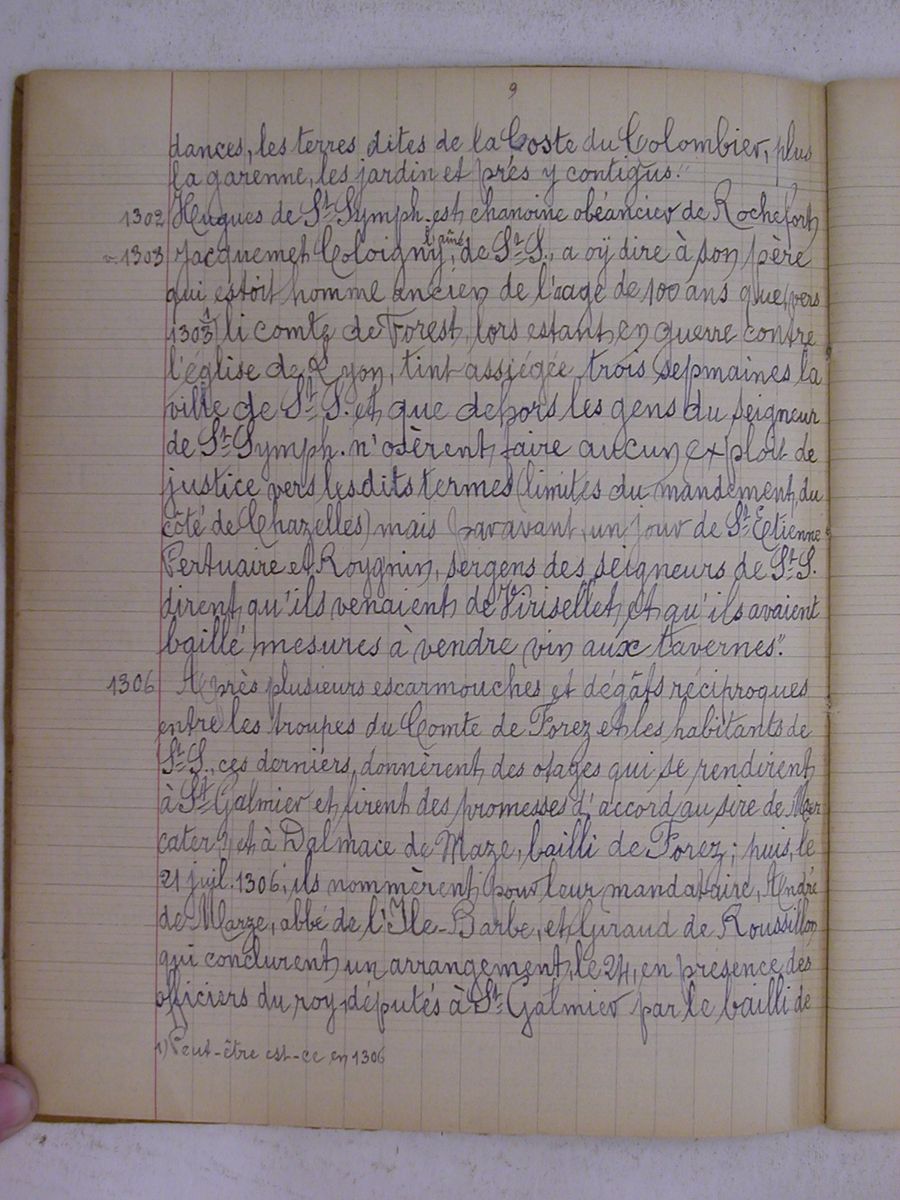 9
dances, les terres dites de la Coste du Colombier, plus
la garenne, les jardin et prés y contigus."
1302 Hugues de St Symph. est chanoine obéancier de Rochefort
v. 1303 Jacquemet Coloigny, l'aîné, de St S., a oÿ dire à son père
qui estoit homme ancien de l'aage de 100 ans que (vers
1303) (1) li comte de Forest, lors estant en guerre contre
l'église de Lyon, tint assiégée trois sepmaines la
ville de St S. et que dehors les gens du seigneur
de St Symph. n'osèrent faire aucun exploit de
justice vers lesdits termes (limites du mandement, du
côté de Chazelles) mais paravant, un jour de St Etienne
Pertuaire et Roygnin, sergens des seigneurs de St S.
dirent qu'ils venaient de Virisellet et qu'ils avaient
baillé mesures à vendre vin aux tavernes."
1306 Après plusieurs escarmouches et dégâts réciproques
entre les troupes du Comte de Forez et les habitants de
St S., ces derniers donnèrent des otages qui se rendirent
à St Galmier et firent des promesses d'accord au sire de Mer
cater et à Dalmace de Maze, bailli de Forez; puis, le
21 juil. 1306, ils nommèrent pour leur mandataire, André
de Marze, abbé de l'Ile-Barbe, et Giraud de Roussillon
qui conclurent un arrangement, le 24, en présence des
officiers du roy députés à St Galmier par le bailli de
1) Peut-être est-ce en 1306